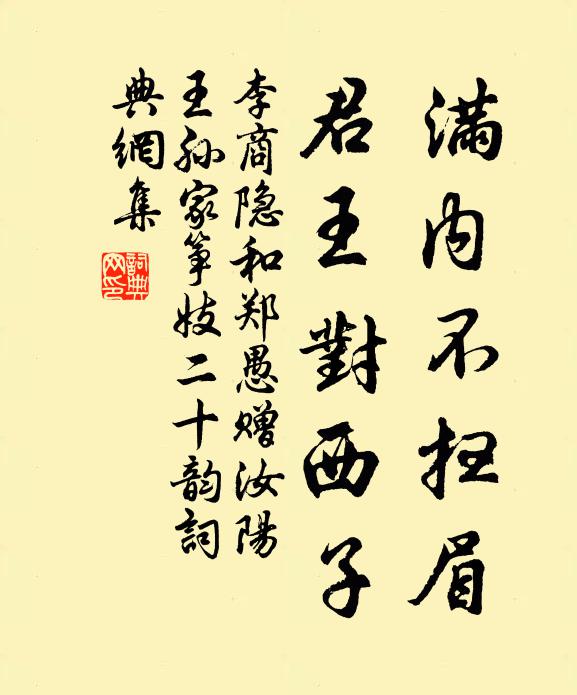 滿内不扫眉
君王對西子
李商隐和郑愚赠汝陽
王孙家筝妓二十韵詞
典網集
詞典
网印